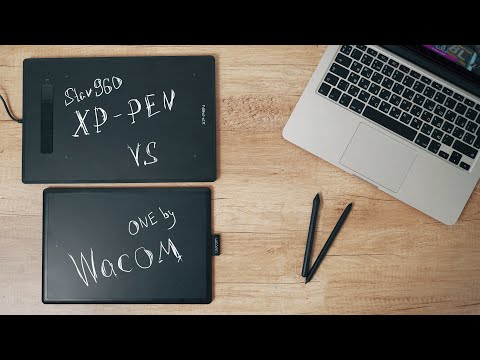 Star960
XP-PEN
VS
XP-PEN
ONE by
WACOM
wacom